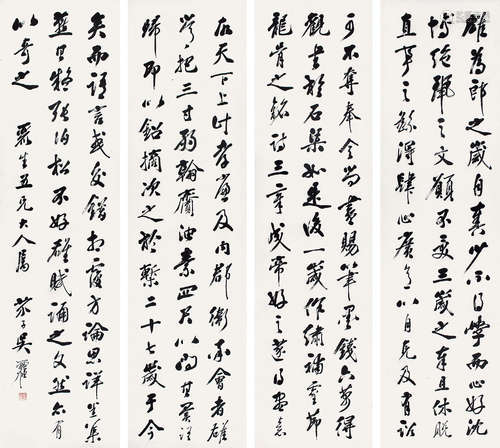 雄為郎之歲自奏少不得學而心好沈
博絕麗之文願不受三歲之奉且休脫
直事之繇得肆心廣意以自克及有詔
可不奪奉令尚書賜筆墨錢六萬得
觀書於石渠如是後一歲作繡補靈節
龍骨之銘詩三章成帝好之遂得盡意
故天下上計孝廉及內郡衛卒會者雄
常把三寸弱翰齎油素四尺以問其異語
歸即以鉛摘次之於槧二十七歲于今
矣而語言或交錯相覆方論思詳悉集
之張伯松不好雄賦誦之文然亦有
以奇之 生五兄大人屬 吳